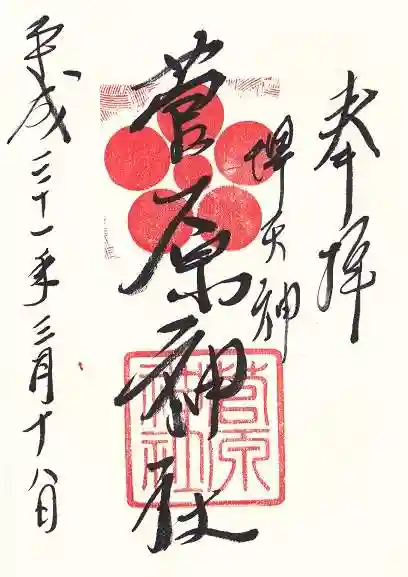 奉拝
堺天神
菅原神社
平成三十一年三月十八日
菅原
神社